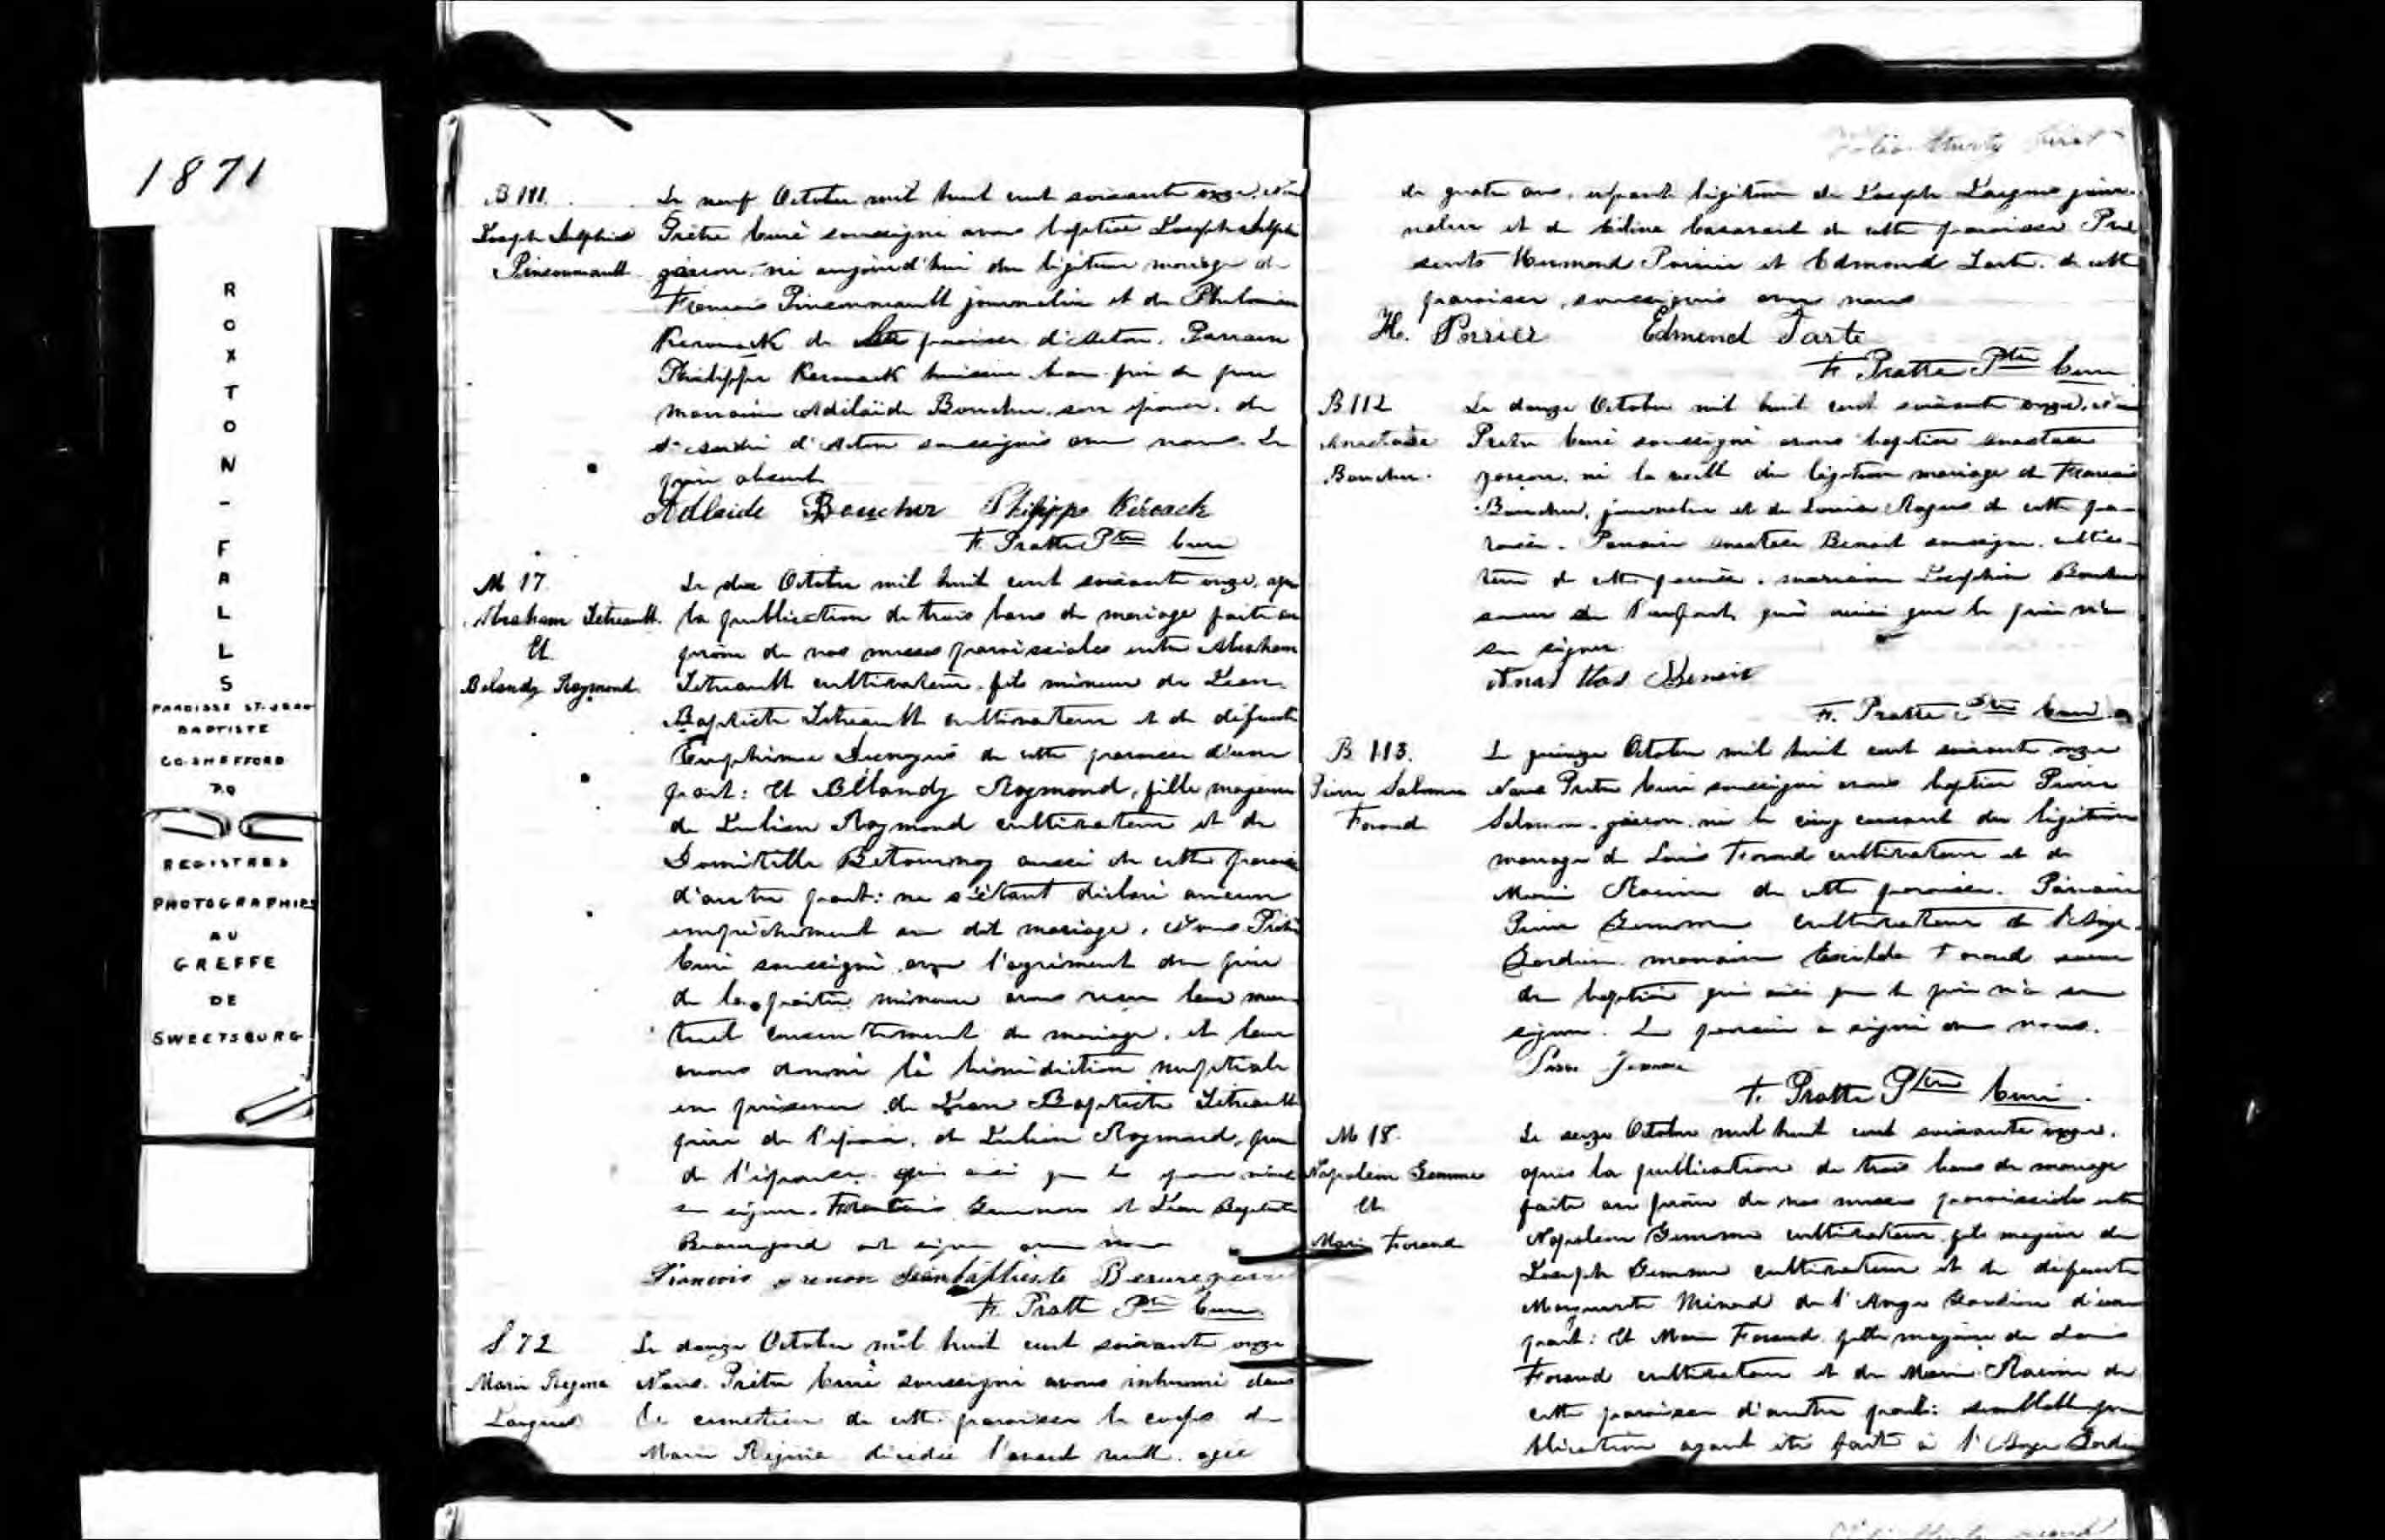 1871
ROXTON-FALLS
PAROISSE ST. JEAN
BAPTISTE
CO. SHEFFORD
P.Q
REGISTRES
PHOTOGRAPHIES
AU
GREFFE
DE
SWEETSBURG
B 111.
Joseph
Pinsonnault
Le neuf Octobre mil huit cent soixante onze, Nous
Prêtre Curé soussigné avons baptisé Joseph
garçon, né aujourd'hui du légitime mariage de
François Pinsonnault journalier et de Philomène
Kerouack de paroisse d'Acton. Parrain
Philippe Kerouack huissier
marraine Adélaïde Boucher, son épouse, de
St André d'Acton soussignés avec nous. Le
père absent
Adlaide Boucher Philippe Kérouack
F. Pratte Ptre Curé
M 17.
Abraham Tetreault
Et
Belandy Raymond.
Le dix Octobre mil huit cent soixante onze, après
la publication de trois bans de mariage faite au
prône de nos messes paroissiales entre Abraham
Tetreault cultivateur, fils mineur de Jean-
Baptiste Tetreault cultivateur et de défunte
Euphémie de cette paroisse d'une
part: Et Bélandy Raymond, fille majeure
de Julien Raymond cultivateur et de
Domitille Betournay aussi de cette paroisse
d'autre part: ne s'étant déclaré aucun
empêchement au dit mariage, Nous Prêtre
Curé soussigné avec l'agrément du père
de la partie mineure avons reçu leur mu-
tuel consentement de mariage, et leur
avons donné la bénédiction nuptiale
en présence de Jean Baptiste Tetreault
père de l'époux, et Julien Raymond, père
de l'épouse qui ainsi que les époux n'ont
su signer. François et Jean Baptiste
Beauregard ont signé avec nous
François Jean baptiste Beauregard
F. Pratte Ptre Curé
S 72
Marie Regina
Le douze Octobre mil huit cent soixante onze
Nous Prêtre Curé soussigné avons inhumé dans
le cimetière de cette paroisse le corps de
Marie Régina décédée l'avant veille, agée
Folio thirty first
de quatre ans, enfant légitime de Joseph jour-
nalier et de Céline de cette paroisse Pré
sents Hermond Poirier et Edmond Tarte de cette
paroisse, soussignés avec nous
H. Poirier Edmond Tarte
F. Pratte Ptre Curé
B 112
Anastase
Boucher.
Le douze Octobre mil huit cent soixante onze, Nous
Prêtre Curé soussigné avons baptisé Anastase
garçon, né la veille du légitime mariage de François
Boucher, journalier et de Louise de cette pa-
roisse. Parrain Anastase Benoit soussigné, cultiva-
teur de cette paroisse, marraine Josephine Boucher
soeur de l'enfant, qui ainsi que le père n'a
su signer.
Anas tas Benoit
F. Pratte Ptre Curé
B 113.
Pierre Salomon
Forand
Le quinze Octobre mil huit cent soixante onze
Nous Prêtre Curé soussigné avons baptisé Pierre
Salomon, garçon, né le cinq courant du légitime
mariage de Louis Forand cultivateur et de
Marie Racine de cette paroisse. Parrain
Pierre Gemme cultivateur de l'Ange-
Gardien. marraine Exilda Forand soeur
du baptisé qui ainsi que le père n'a su
signer. Le parrain a signé avec nous.
Pierre Jemme
F. Pratte Ptre Curé.
M 18.
Napoleon Gemme
Et
Marie Forand
Le seize Octobre mil huit cent soixante onze,
après la publication de trois bans de mariage
faite au prône de nos messes paroissiales entre
Napoleon Gemme cultivateur, fils majeur de
Joseph Gemme cultivateur et de défunte
Marguerite Ménard de l'Ange Gardien d'une
part: Et Marie Forand, fille majeure de Louis
Forand cultivateur et de Marie Racine de
cette paroisse d'autre part: semblable pu
blication ayant été faite à l'Ange Gardien